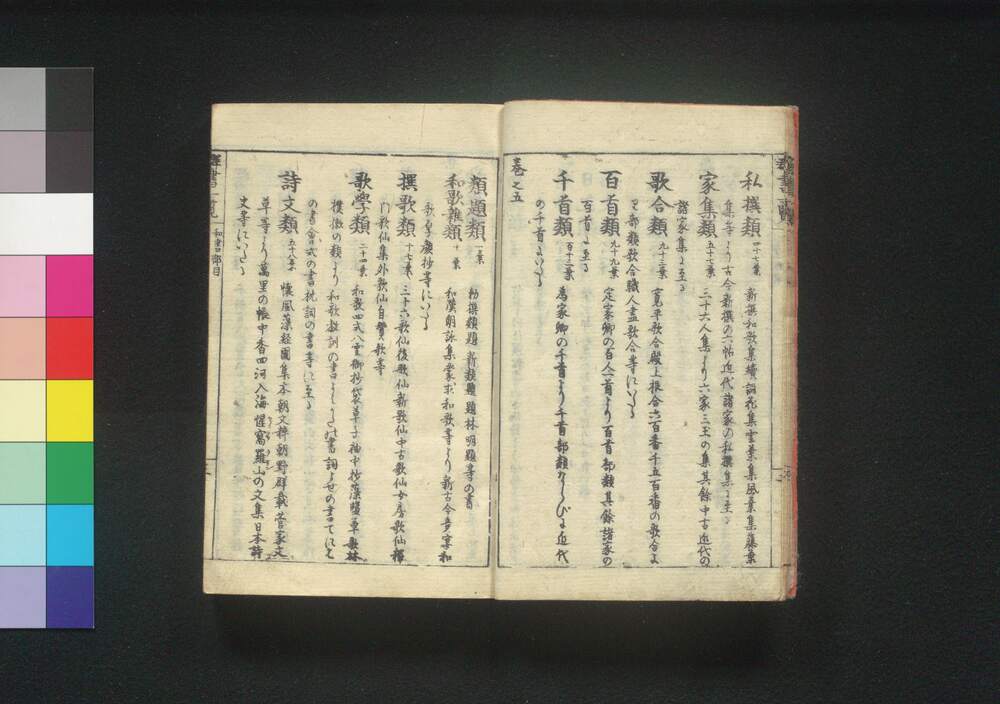 私撰類 四十七葉 新撰和歌集續詞花集雲葉集風葉集藤葉
集等より古今新撰の六帖近代諸家の私撰集に至る
家集類 五十七葉 三十六人集より六家三玉の集其餘中古近代の
諸家集に至る
歌合類 九十三葉 寛平歌合殿上根合六百番千五百番の歌合よ
り部類歌合職人盡歌合等にいたる
百首類 九十九葉 定家卿の百人一首より百首部類其餘諸家の
百首に至る
千首類 百十二葉 為家卿の千首より千首部類ならびに近代
の千首にいたる
巻之五
類題類 一葉 勅撰類題新類題題林明題等の書
和歌雜類 十葉 和漢朗詠集蒙求和歌等より新古今竟宴和
歌 類抄等にいたる
撰歌類 十七葉 三十六歌仙後歌仙新歌仙中古歌仙女房歌仙釋
門歌仙集外歌仙自讃歌等
歌學類 二十四葉 和歌四式八雲御抄袋草子袖中抄藻鹽草歌林
樸樕の類より和歌教訓の書
の書會式の書枕詞の書等に至る
詩文類 五十八葉 懐風藻経國集本朝文粹朝野群載菅家文
草等より萬里の帳中香四河入海惺窩羅山の文集日本詩
史等にいたる
群書一覧 和書部目